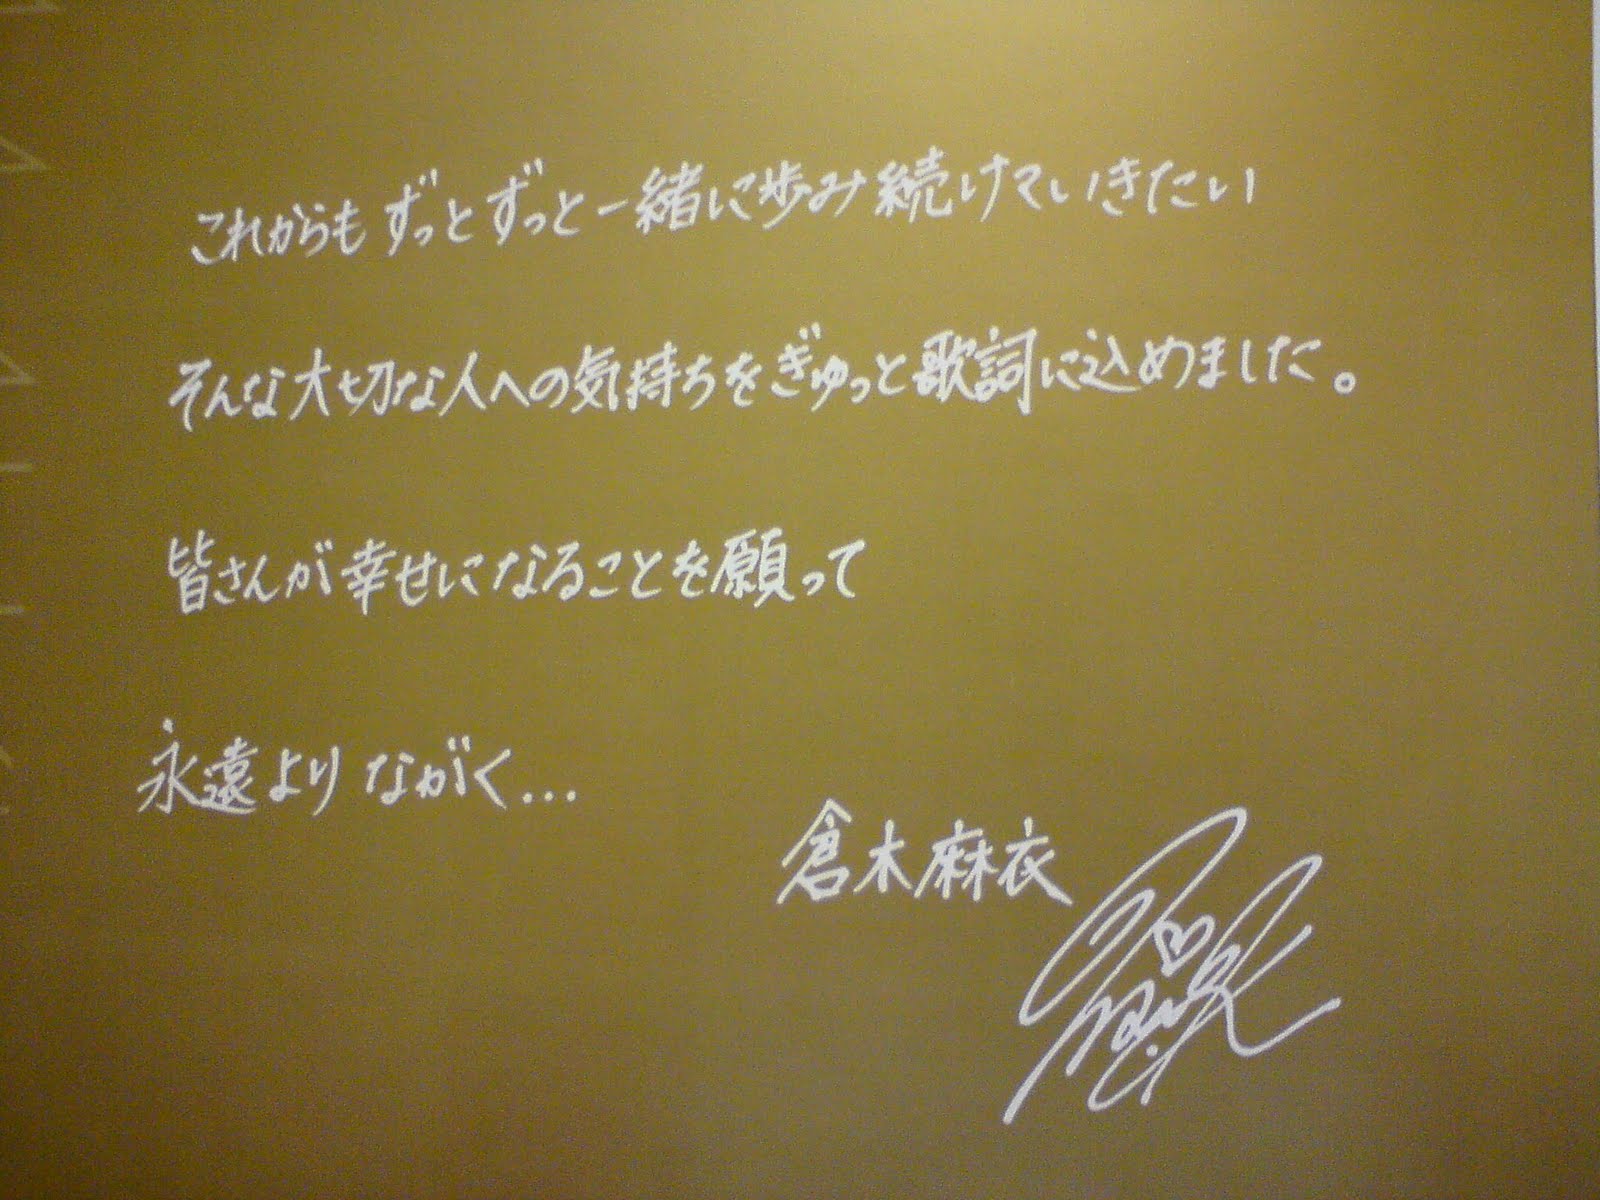 これからもずっとずっと一緒に歩み続けていきたい
そんな大切な人への気持ちをぎゅっと歌詞に込めました。
皆さんが幸せになることを願って
永遠よりながく...
倉木麻衣